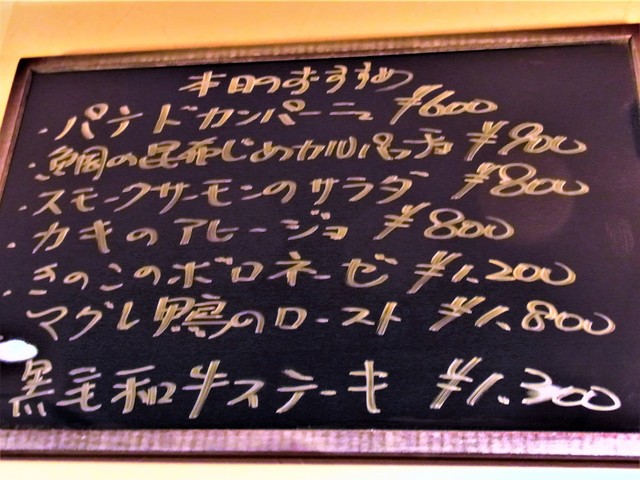 本日のおすすめ
・パテドカンパーニュ ¥600
・鯛の昆布じめカルパッチョ ¥900
・スモークサーモンのサラダ ¥800
・カキのアヒージョ ¥800
・きのこのボロネーゼ ¥1,200
マグレ鴨のロースト ¥1,800
黒毛和牛ステーキ ¥1,300